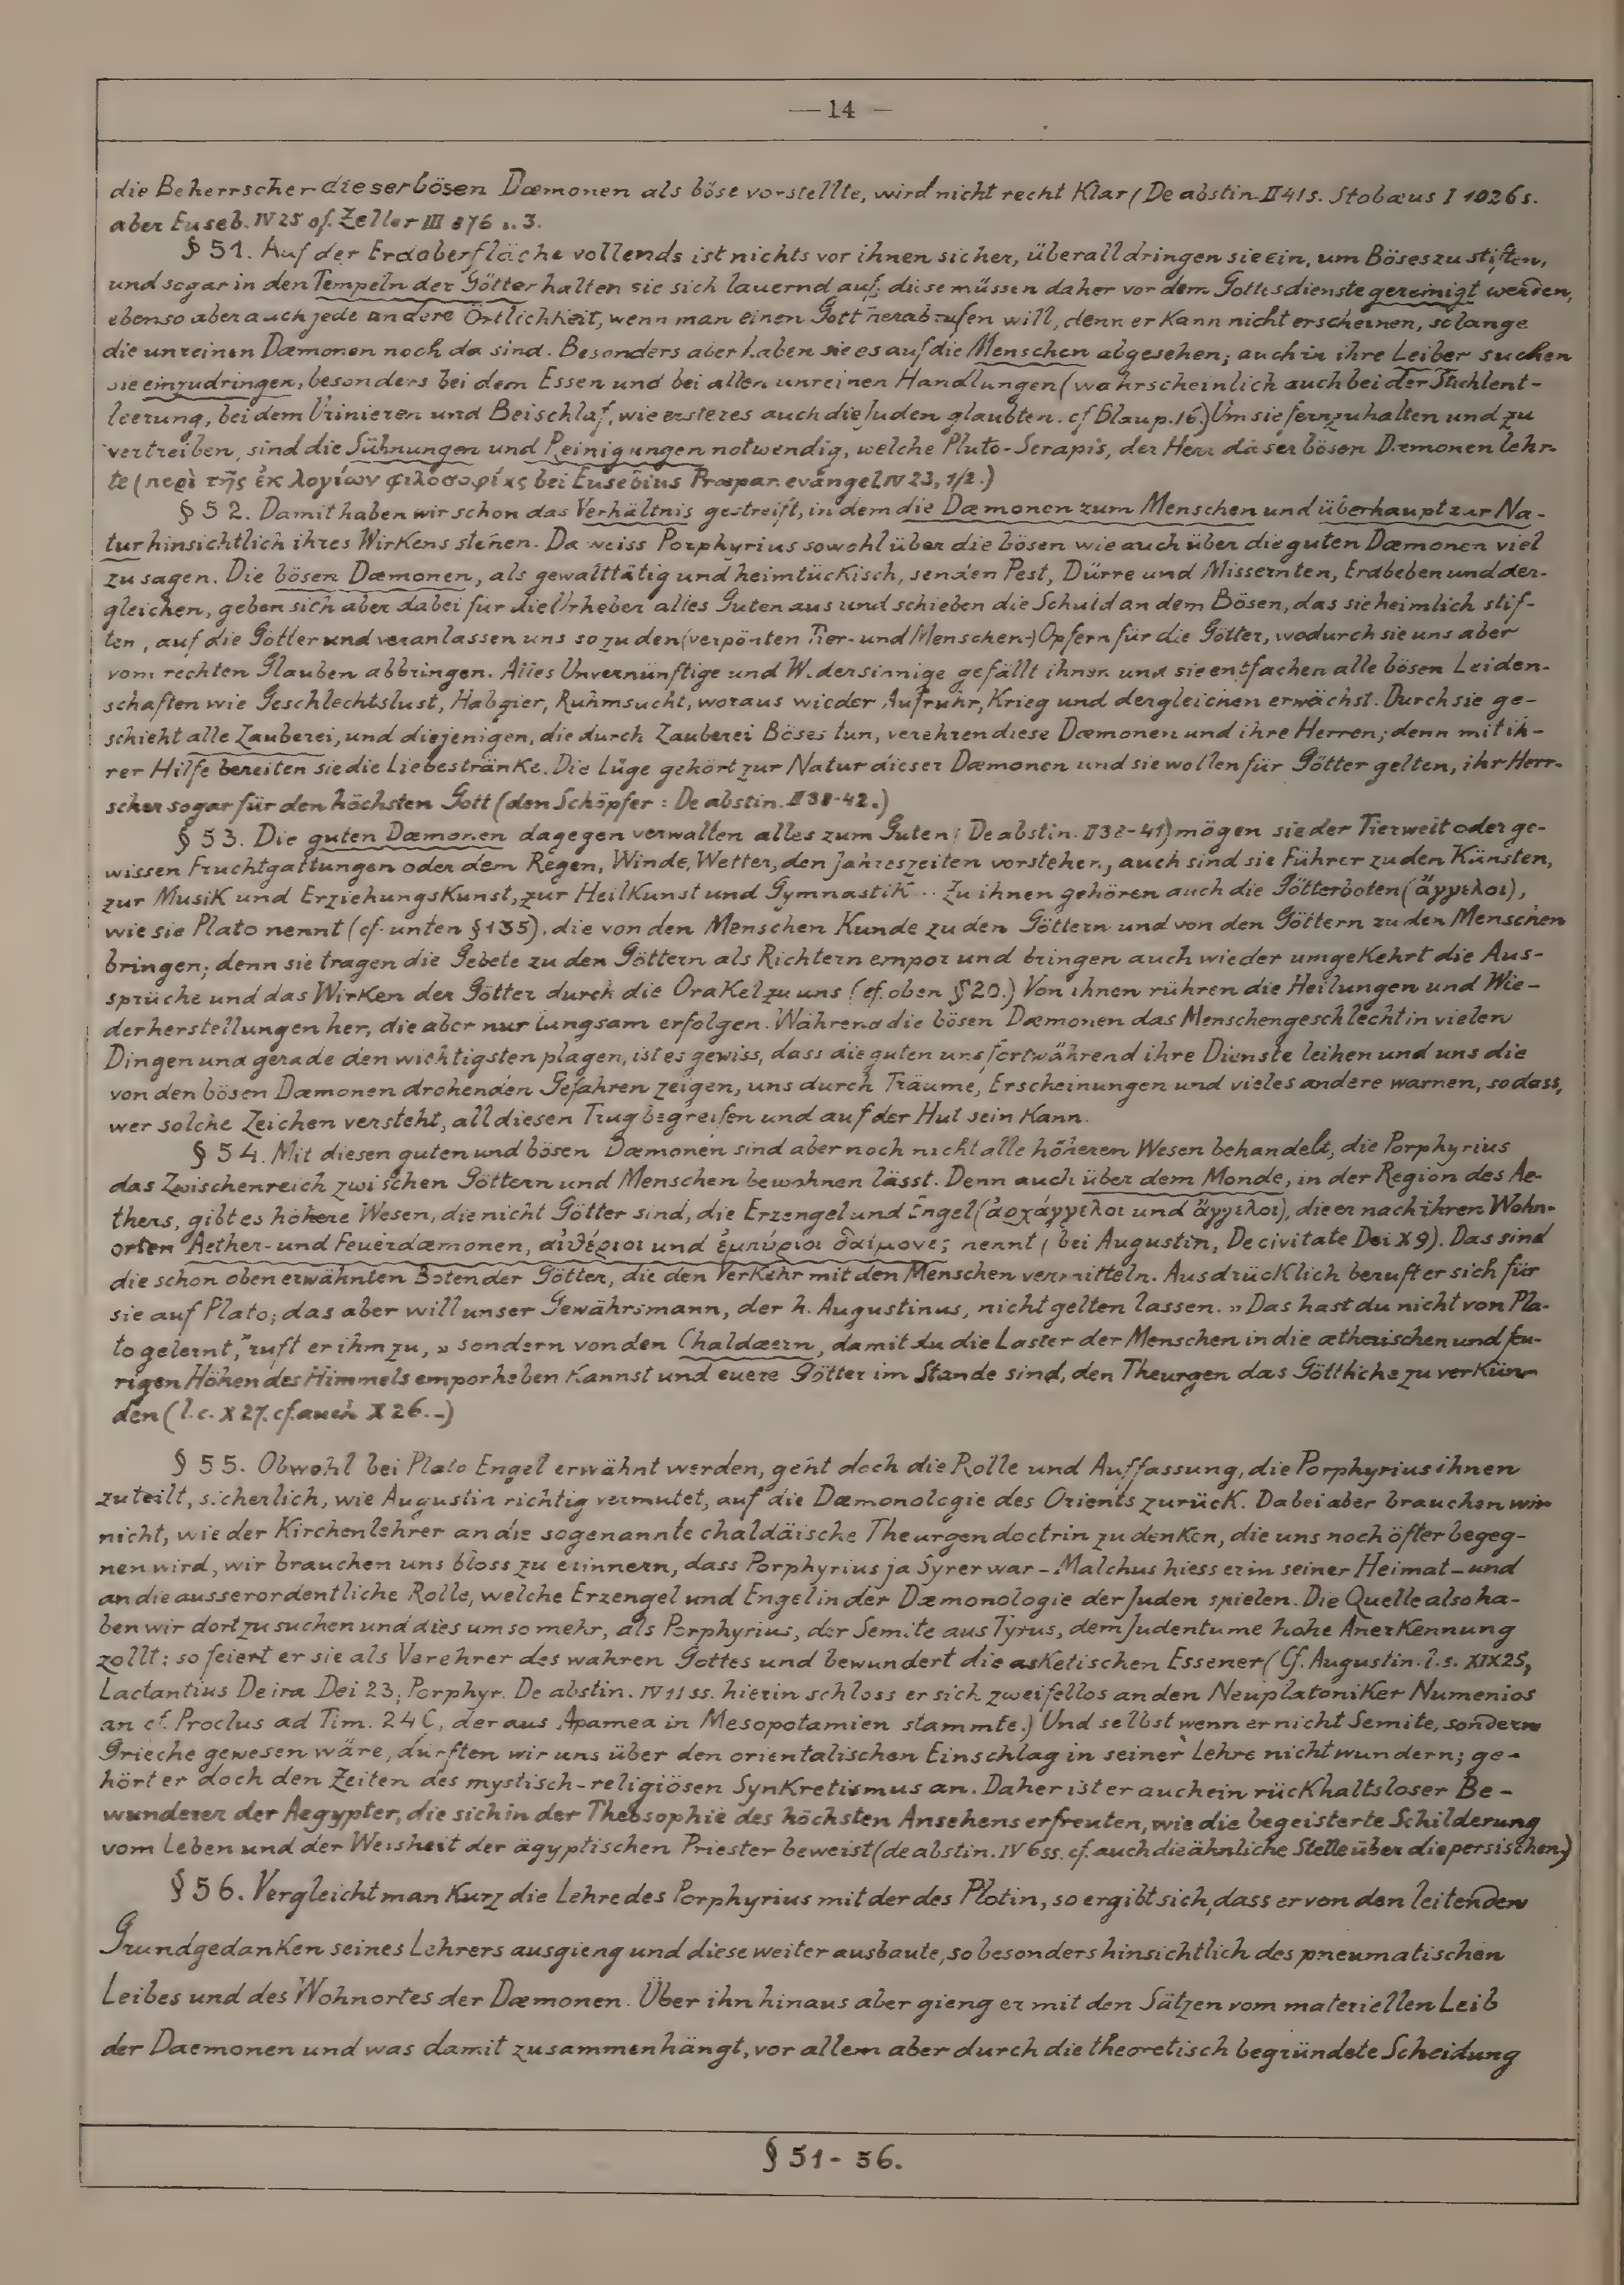 — 14 —
die Beherrscher dieser bösen Dæmonen als böse vorstellte, wird nicht recht klar (De abstin. II 41 s. Stobæus I 1026 s.
aber Euseb. IV 25 cf. Zeller III 876 n. 3.
§ 51. Auf der Erdoberfläche vollends ist nichts vor ihnen sicher, überall dringen sie ein, um Böses zu stiften,
und sogar in den Tempeln der Götter halten sie sich lauernd auf; diese müssen daher vor dem Gottesdienste gereinigt werden,
ebenso aber auch jede andere Örtlichkeit, wenn man einen Gott herabrufen will, denn er kann nicht erscheinen, solange
die unreinen Dæmonen noch da sind. Besonders aber haben sie es auf die Menschen abgesehen; auch in ihre Leiber suchen
sie einzudringen, besonders bei dem Essen und bei allen unreinen Handlungen (wahrscheinlich auch bei der Stuhlent-
leerung, bei dem Urinieren und Beischlaf, wie ersteres auch die Juden glaubten. cf Blau p. 16.) Um sie fernzuhalten und zu
vertreiben, sind die Sühnungen und Reinigungen notwendig, welche Pluto-Serapis, der Herr dieser bösen Dæmonen lehr-
te (περὶ τῆς ἐκ λογίων φιλοσοφίας bei Eusebius Præpar. evangel IV 23, 1/2.)
§ 52. Damit haben wir schon das Verhältnis gestreift, in dem die Dæmonen zum Menschen und überhaupt zur Na-
tur hinsichtlich ihres Wirkens stehen. Da weiss Porphyrius sowohl über die bösen wie auch über die guten Dæmonen viel
zu sagen. Die bösen Dæmonen, als gewalttätig und heimtückisch, senden Pest, Dürre und Missernten, Erdbeben und der-
gleichen, geben sich aber dabei für die Urheber alles Guten aus und schieben die Schuld an dem Bösen, das sie heimlich stif-
ten, auf die Götter und veranlassen uns so zu den (verpönten Tier- und Menschen-) Opfern für die Götter, wodurch sie uns aber
vom rechten Glauben abbringen. Alles Unvernünftige und Widersinnige gefällt ihnen und sie entfachen alle bösen Leiden-
schaften wie Geschlechtslust, Habgier, Ruhmsucht, woraus wieder Aufruhr, Krieg und dergleichen erwächst. Durch sie ge-
schieht alle Zauberei, und diejenigen, die durch Zauberei Böses tun, verehren diese Dæmonen und ihre Herren; denn mit ih-
rer Hilfe bereiten sie die Liebestränke. Die Lüge gehört zur Natur dieser Dæmonen und sie wollen für Götter gelten, ihr Herr-
scher sogar für den höchsten Gott (den Schöpfer: De abstin. II 38-42.)
§ 53. Die guten Dæmonen dagegen verwalten alles zum Guten (De abstin. II 38-41) mögen sie der Tierwelt oder ge-
wissen Fruchtgattungen oder dem Regen, Winde, Wetter, den Jahreszeiten vorstehen, auch sind sie Führer zu den Künsten,
zur Musik und Erziehungskunst, zur Heilkunst und Gymnastik .. Zu ihnen gehören auch die Götterboten (ἄγγελοι),
wie sie Plato nennt (cf. unten § 135), die von den Menschen Kunde zu den Göttern und von den Göttern zu den Menschen
bringen; denn sie tragen die Gebete zu den Göttern als Richtern empor und bringen auch wieder umgekehrt die Aus-
sprüche und das Wirken der Götter durch die Orakel zu uns (cf. oben § 20.) Von ihnen rühren die Heilungen und Wie-
derherstellungen her, die aber nur langsam erfolgen. Während die bösen Dæmonen das Menschengeschlecht in vielen
Dingen und gerade den wichtigsten plagen, ist es gewiss, dass die guten uns fortwährend ihre Dienste leihen und uns die
von den bösen Dæmonen drohenden Gefahren zeigen, uns durch Träume, Erscheinungen und vieles andere warnen, sodass,
wer solche Zeichen versteht, all diesen Trug begreifen und auf der Hut sein kann.
§ 54. Mit diesen guten und bösen Dæmonen sind aber noch nicht alle höheren Wesen behandelt, die Porphyrius
das Zwischenreich zwischen Göttern und Menschen bewohnen lässt. Denn auch über dem Monde, in der Region des Ae-
thers, gibt es höhere Wesen, die nicht Götter sind, die Erzengel und Engel (ἀρχάγγελοι und ἄγγελοι), die er nach ihren Wohn-
orten Aether- und Feuerdæmonen, αἰθέριοι und ἐμπύριοι δαίμονες nennt (bei Augustin, De civitate Dei X 9). Das sind
die schon oben erwähnten Boten der Götter, die den Verkehr mit den Menschen vermitteln. Ausdrücklich beruft er sich für
sie auf Plato; das aber will unser Gewährsmann, der h. Augustinus, nicht gelten lassen. „Das hast du nicht von Pla-
to gelernt," ruft er ihm zu, „sondern von den Chaldæern, damit du die Laster der Menschen in die ætherischen und feu-
rigen Höhen des Himmels emporheben kannst und euere Götter im Stande sind, den Theurgen das Göttliche zu verkün-
den (l. c. X 27. cf. auch X 26. -)
§ 55. Obwohl bei Plato Engel erwähnt werden, geht doch die Rolle und Auffassung, die Porphyrius ihnen
zuteilt, sicherlich, wie Augustin richtig vermutet, auf die Dæmonologie des Orients zurück. Dabei aber brauchen wir
nicht, wie der Kirchenlehrer an die sogenannte chaldäische Theurgendoctrin zu denken, die uns noch öfter begeg-
nen wird, wir brauchen uns bloss zu erinnern, dass Porphyrius ja Syrer war - Malchus hiess er in seiner Heimat - und
an die ausserordentliche Rolle, welche Erzengel und Engel in der Dæmonologie der Juden spielen. Die Quelle also ha-
ben wir dort zu suchen und dies um so mehr, als Porphyrius, der Semite aus Tyrus, dem Judentume hohe Anerkennung
zollt: so feiert er sie als Verehrer des wahren Gottes und bewundert die asketischen Essener (Cf. Augustin. l. s. XIX 25,
Lactantius De ira Dei 23, Porphyr. De abstin. IV 11 ss. hierin schloss er sich zweifellos an den Neuplatoniker Numenios
an cf. Proclus ad Tim. 24 C, der aus Apamea in Mesopotamien stammte.) Und selbst wenn er nicht Semite, sondern
Grieche gewesen wäre, dürften wir uns über den orientalischen Einschlag in seiner Lehre nicht wundern; ge-
hört er doch den Zeiten des mystisch-religiösen Synkretismus an. Daher ist er auch ein rückhaltsloser Be-
wunderer der Aegypter, die sich in der Theosophie des höchsten Ansehens erfreuten, wie die begeisterte Schilderung
vom Leben und der Weisheit der ägyptischen Priester beweist (de abstin. IV 6 ss. cf. auch die ähnliche Stelle über die persischen.)
§ 56. Vergleicht man kurz die Lehre des Porphyrius mit der des Plotin, so ergibt sich, dass er von den leitenden
Grundgedanken seines Lehrers ausgieng und diese weiter ausbaute, so besonders hinsichtlich des pneumatischen
Leibes und des Wohnortes der Dæmonen. Über ihn hinaus aber gieng er mit den Sätzen vom materiellen Leib
der Daemonen und was damit zusammenhängt, vor allem aber durch die theoretisch begründete Scheidung
§ 51 - 56.